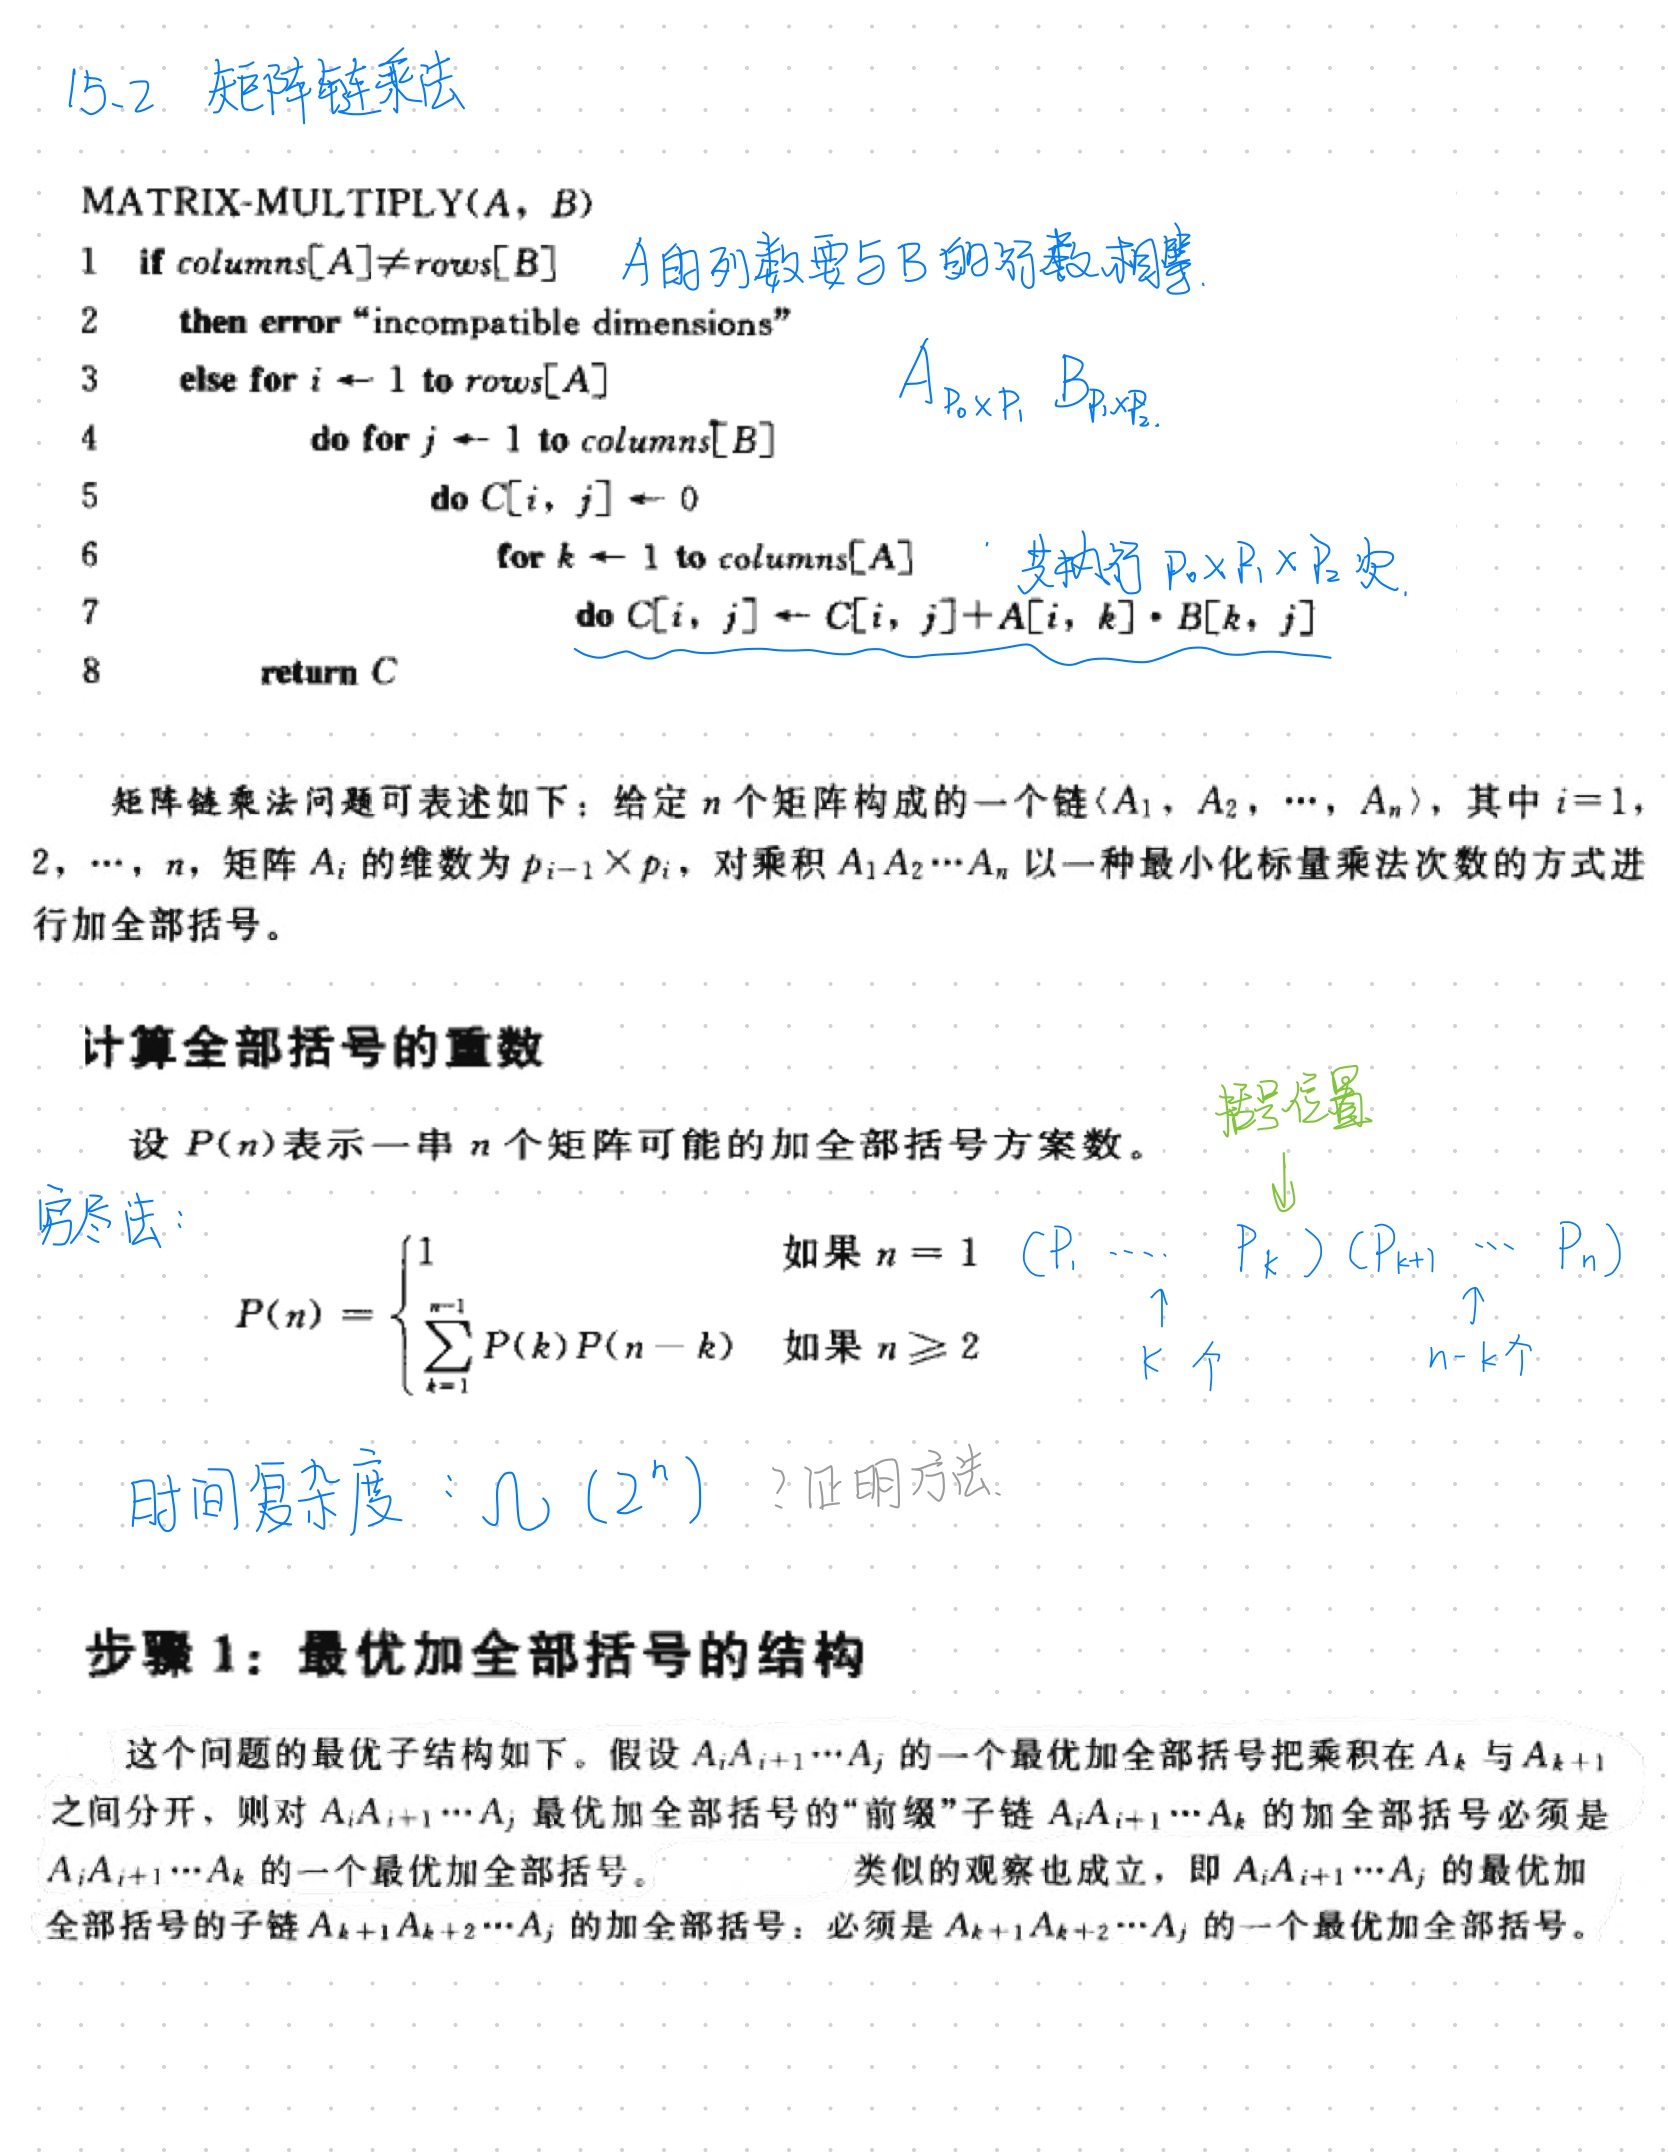 15.2 矩阵链乘法
MATRIX-MULTIPLY(A, B)
1 if columns[A]≠rows[B] A的列数要与B的行数相等.
2 then error “incompatible dimensions”
3 else for i ← 1 to rows[A]
A_{P₀×P₁} B_{P₁×P₂}.
4 do for j ← 1 to columns[B]
5 do C[i, j] ← 0
6 for k ← 1 to columns[A] 共执行 P₀×P₁×P₂ 次.
7 do C[i, j] ← C[i, j]+A[i, k]·B[k, j]
8 return C
矩阵链乘法问题可表述如下：给定 n 个矩阵构成的一个链⟨A₁, A₂, …, Aₙ⟩，其中 i=1,
2, …, n, 矩阵 Aᵢ 的维数为 pᵢ₋₁×pᵢ，对乘积 A₁A₂…Aₙ 以一种最小化标量乘法次数的方式进
行加全部括号。
计算全部括号的重数
括号位置
设 P(n)表示一串 n 个矩阵可能的加全部括号方案数。
穷尽法：
1 如果 n = 1 (P₁ ···· P_k)(P_{k+1} ··· P_n)
P(n) = { ∑_{k=1}^{n-1} P(k)P(n-k) 如果 n ≥ 2
k 个 n-k个
时间复杂度：Ω(2ⁿ) ?证明方法.
步骤 1：最优加全部括号的结构
这个问题的最优子结构如下。假设 AᵢAᵢ₊₁…Aⱼ 的一个最优加全部括号把乘积在 A_k 与 A_{k+1}
之间分开，则对 AᵢAᵢ₊₁…Aⱼ 最优加全部括号的“前缀”子链 AᵢAᵢ₊₁…A_k 的加全部括号必须是
AᵢAᵢ₊₁…A_k 的一个最优加全部括号。 类似的观察也成立，即 AᵢAᵢ₊₁…Aⱼ 的最优加
全部括号的子链 A_{k+1}A_{k+2}…Aⱼ 的加全部括号：必须是 A_{k+1}A_{k+2}…Aⱼ 的一个最优加全部括号。